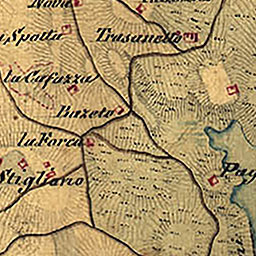 Nova
Spotta
Trasanello
la Cafazza
Bazeto
la Forca
Stigliano
Pag